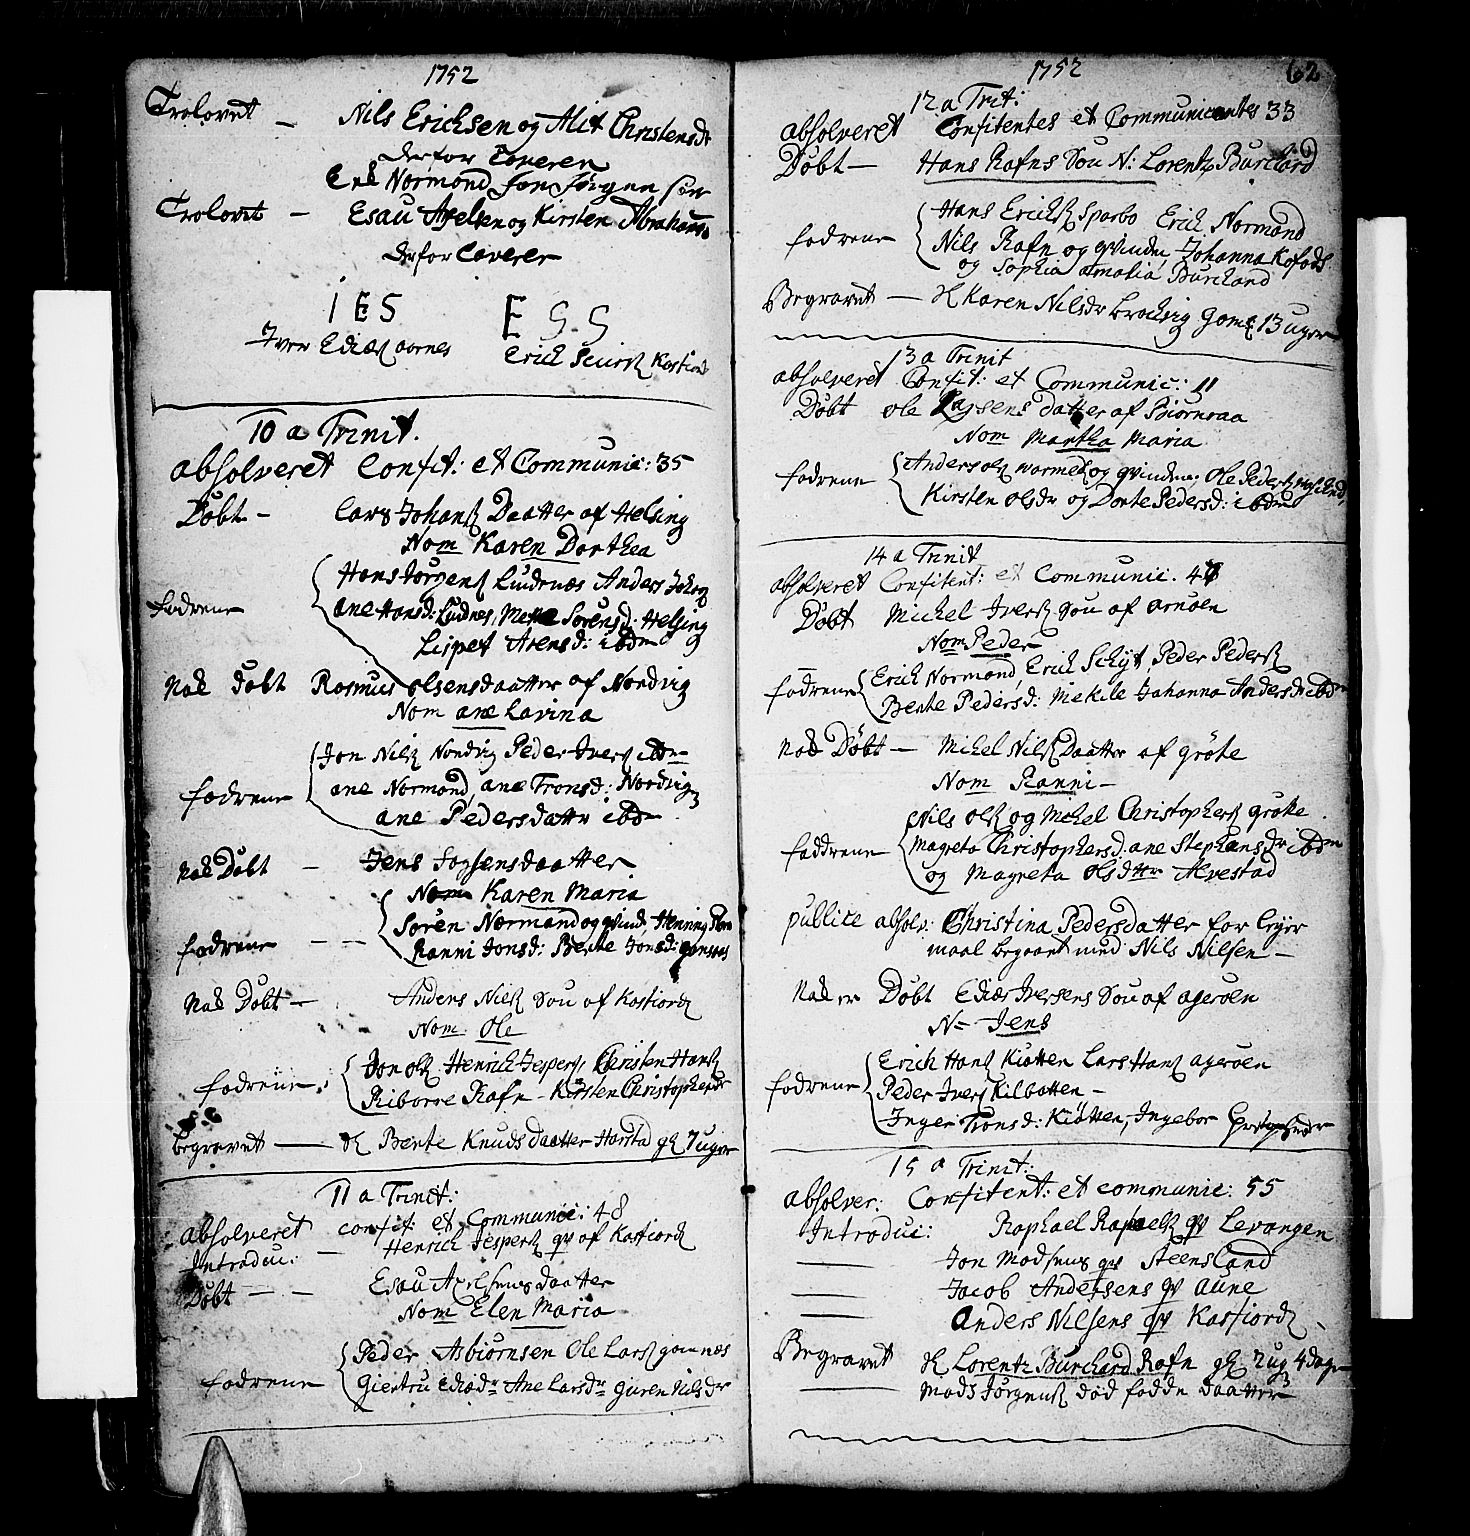 1752
Trolovet — Nils Erichsen og Alit Christensdr
derfor Caverer
Erik Normond Jon Jørgen sen
Trolovet — Esau Axelsen og Kirsten Abrahams
derfor Caverer
I E S E S S
Iver Ediæs aarnes Erich Kastiord
10 a Trinit.
absolveret Confit: et Communic: 35
Døbt — Lars Johans Daatter af Helsing
Nom Karen Dorthea
fadrene Hans Jørgens Lündnæs Anders Johns
ane Hansd: Lüdnes, Mette Sørensd: Helsing
Lispet Arensd: ibdm
Nok døbt Rasmus olsens daatter af Nordvig
Nom ane Lavina
fadrene Jon Nils Nordvig Peder Ivers ibdm
ane Normond, ane Tronsd: Nordvig
ane Pedersdatter ibdm
Nok Døbt — Jens daatter
Nom Karen Maria
fadrene — Søren Normand og qvind Henning
Ranni Jonsd: Bente Jonsd:
Nok Døbt — Anders Niels Søn af Kastiord
Nom Ole
fadrene: Jon ols Henrich Jespers, Christen Hans
Riborre Rafn — Kirsten Christophersdr
begravet — Bente Knuds daatter Harstad gl 7 uger
11 a Trinit:
absolveret confit: et Communic: 48
Introduc: — Henrich Jespers qv af Kastiord
Døbt — Esau Axelsens daatter
Nom Elen Maria
fadrene Peder Asbiørnsen Ole Lars gomnæs
Giertru Ediædr Ane Larsdr Guren Nilsdr
1752 62
12 a Trit:
absolveret Confitentes et Communicantes 33
Døbt — Hans Rafns Søn N: Lorentz Burchard
fadrene Hans Erichs Sparbo Erich Normand
Nils Rafn og qvinde, Johanna Kofods
og Sophia amalia Burchard
Begravet — Karen Nilsdr brochvig gaml 13 uger
13 a Trinit
absolveret Confit: et Communic: 11
Døbt ole datter af Biørnraa
Nom Martha Maria
fadrene Anders ols Normel og qvinden, Ole Peders
Kirsten olsdr og Dorte Pedersd: ibdm
14 a Trinit
absolveret Confitent: et Communic. 47
Døbt Michel Ivers Søn af arnøen
Nom Peder
fadrene Erich Normond, Erich Schyt Peder Peders
Bente Pedersd: Mekele Johanna Andersdr ibdm
Nok Døbt — Michel Nils Daatter af grøte
Nom Ranni —
faddrene Nils ols og Michel Christophers grøtte
Magreta Christophersd. ane Stephensdr ibdm
og Magreta Olsdttr Alvestad
publice absolv: Christina Pedersdatter for leyer
maal begaaet med Nils Nilsen —
Nok er Døbt Ediæs Iversens Søn af agerøen
N— Jens
fadrene Erich Hans Kiøtten Lars Hans agerøen
Peder Ivers Kilbotten —
Inger Tronsd: Kiøtten, Ingebor
15 a Trinit:
absolver: Confitent: et communic: 55
Introduc: Raphael Raphaels qv Levangen
— Jon Madsens qv Steensland
— Jacob Andersens qv aune
— Anders Nilsens qv Kastiord
Begravet Lorentz Burchard Rafn gl 2 ug 4 dage
— Mads Jørgens død fødde daatter